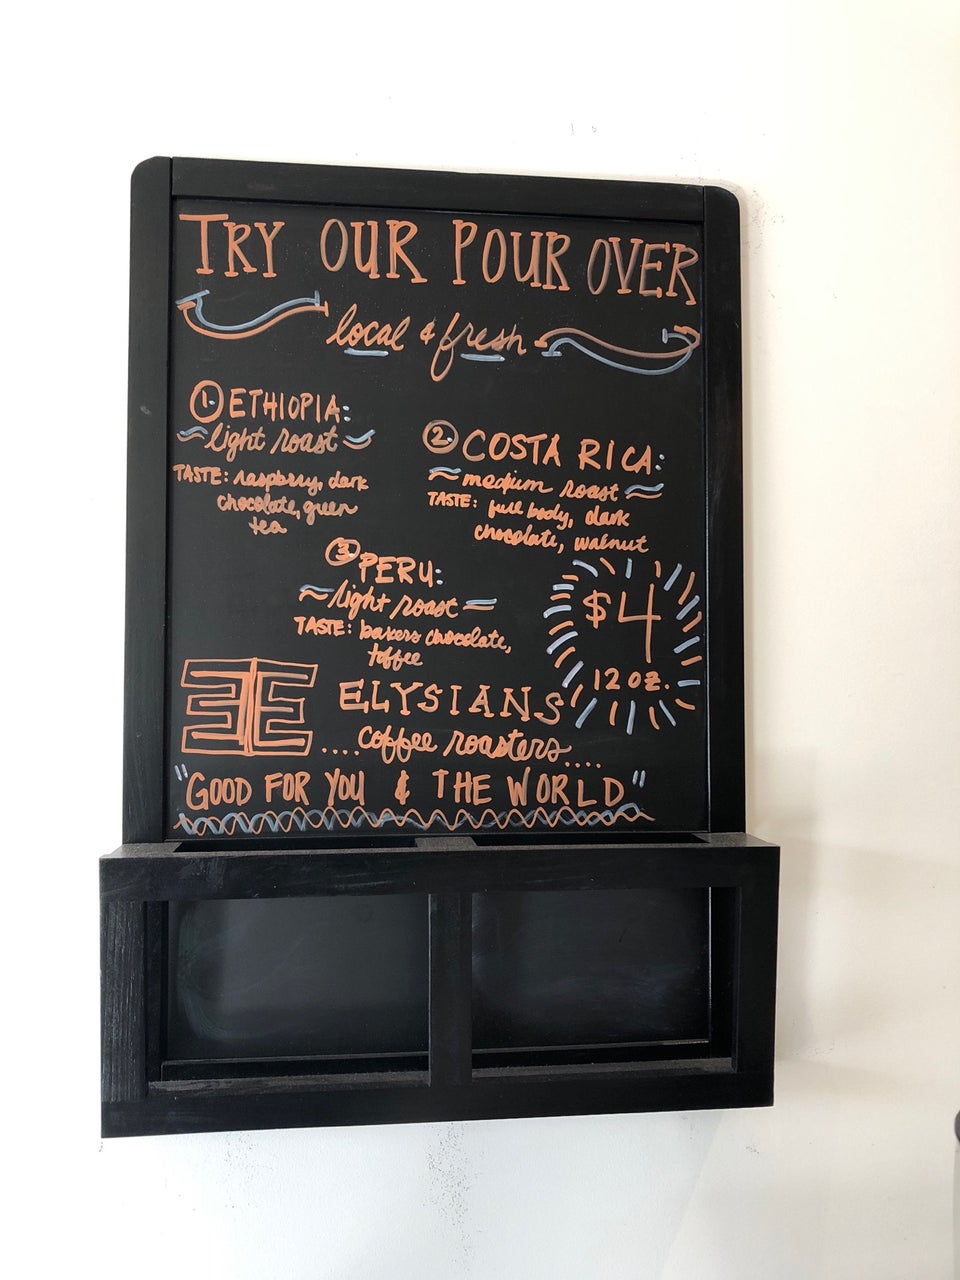 TRY OUR POUR OVER
local & fresh
1. ETHIOPIA:
~light roast~
TASTE: raspbrry, dark
chocolate, green
tea
2. COSTA RICA:
~medium roast~
TASTE: full body, dark
chocolate, walnut
3. PERU:
~light roast~
TASTE: bakers chocolate,
toffee
$4
12 oz.
ELYSIANS
....coffee roasters....
"GOOD FOR YOU & THE WORLD"